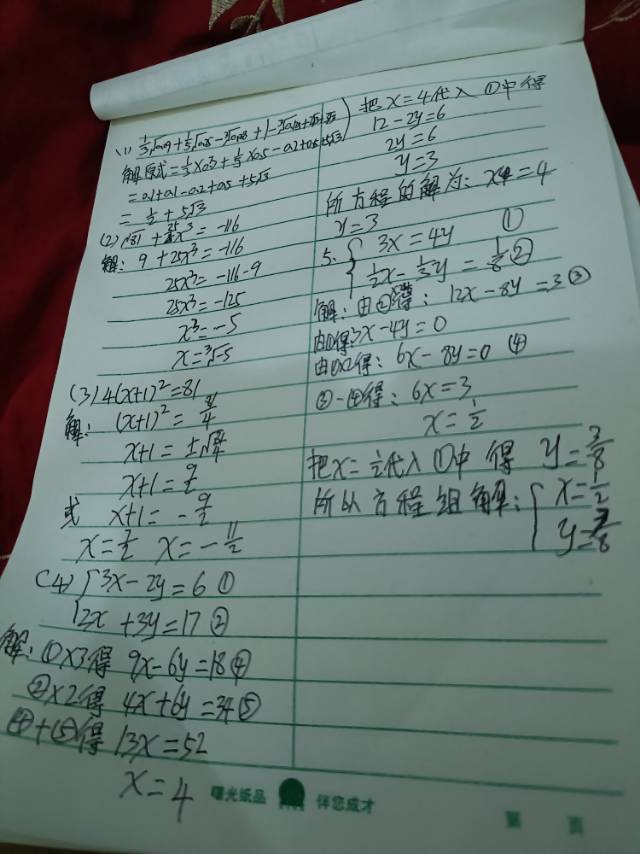 (1) 1/3√0.09 + 1/5√0.25
解原式=1/3×0.3+1/5×0.5-0.2+0.5+5√3
=0.1+0.1-0.2+0.5+5√3
=1/2+5√3
(2) √81 + 25x³=-116
解: 9+25x³=-116
25x³=-116-9
25x³=-125
x³=-5
x=³√-5
(3) 4(x+1)²=81
解: (x+1)²=81/4
x+1=±√81/4
x+1=9/2
或 x+1=-9/2
x=7/2 x=-11/2
(4) {3x-2y=6 ①
2x+3y=17 ②
解: ①×3得 9x-6y=18④
②×2得 4x+6y=34⑤
④+⑤得 13x=52
x=4
把x=4代入①中得
12-2y=6
2y=6
y=3
所方程的解为: x=4
y=3
5. {3x=4y ①
1/2x-1/3y=1/8②
解: 由②得: 12x-8y=3③
由①得:3x-4y=0
由①×2得: 6x-8y=0 ④
③-④得: 6x=3
x=1/2
把x=1/2代入①中得 y=3/8
所以方程组解: {x=1/2
y=3/8
曙光纸品 伴您成才
第 页